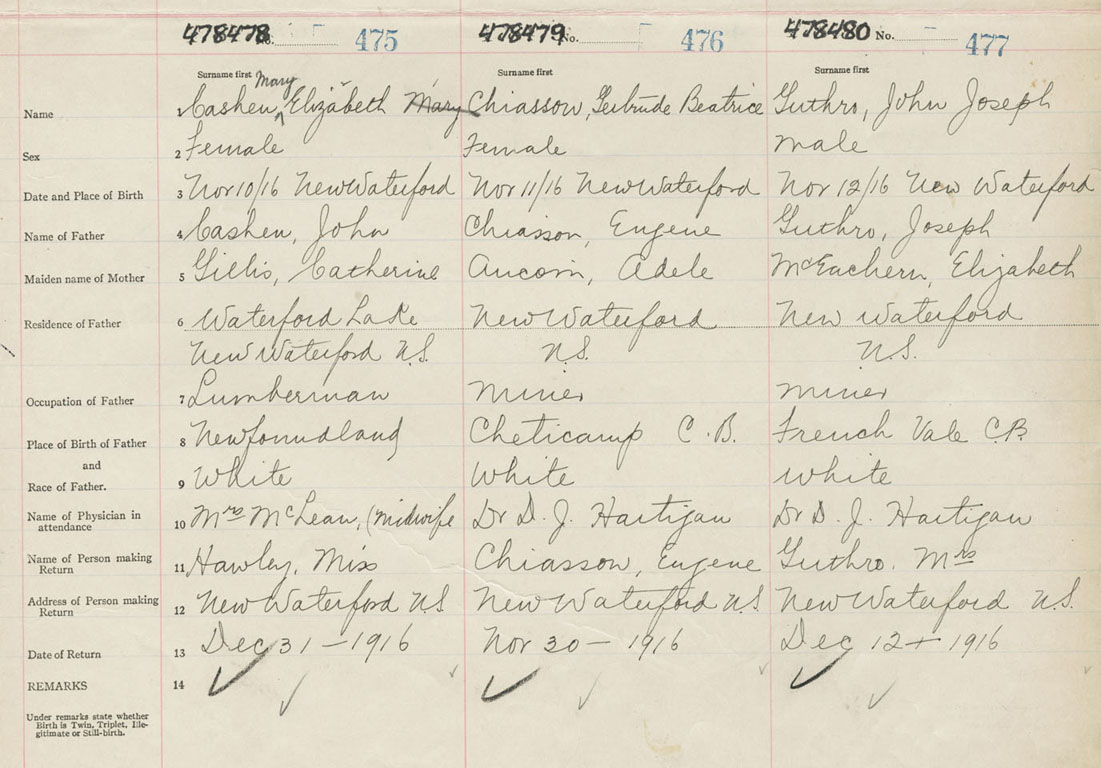 478478 No. 475 478479 No. 476 478480 No. 477
Surname first Surname first Surname first
Mary
Name 1 Cashen, Elizabeth Mary Chiasson, Gertrude Beatrice Guthro, John Joseph
Sex 2 Female Female Male
Date and Place of Birth 3 Nov 10/16 New Waterford Nov 11/16 New Waterford Nov 12/16 New Waterford
Name of Father 4 Cashen, John Chiasson, Eugene Guthro, Joseph
Maiden name of Mother 5 Gillis, Catherine Aucoin, Adele McEachern, Elizabeth
Residence of Father 6 Waterford Lake New Waterford New Waterford
New Waterford N.S. N.S. N.S.
Occupation of Father 7 Lumberman Miner Miner
Place of Birth of Father 8 Newfoundland Cheticamp C.B. French Vale C.B.
and
Race of Father. 9 White White White
Name of Physician in
attendance 10 Mrs McLean, (Midwife Dr D. J. Hartigan Dr D. J. Hartigan
Name of Person making
Return 11 Hawley, Miss Chiasson, Eugene Guthro. Mrs
Address of Person making
Return 12 New Waterford N.S New Waterford N.S New Waterford N.S.
Date of Return 13 Dec 31 - 1916 Nov 30 - 1916 Dec 12 1916
REMARKS 14
Under remarks state whether
Birth is Twin, Triplet, Ille-
gitimate or Still-birth.